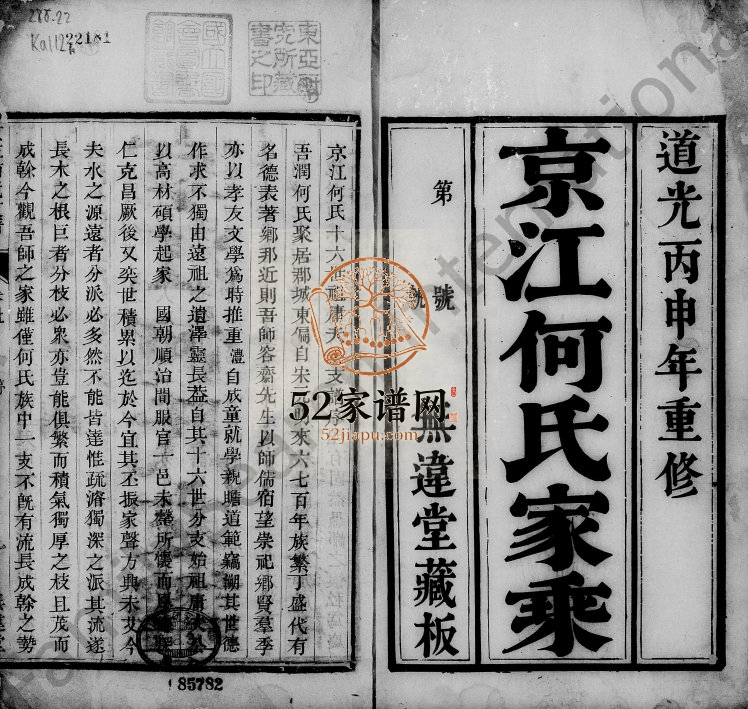 道光丙申年重修
京江何氏家乘
第
號
無違堂藏板
東亞研
究所藏
書之印
288.22
Ka112
22181
京江何氏十六世祖
吾潤何氏聚居郡城東偏自朱
來六七百年族繁丁盛代有
名德表著鄉邦近則吾師
齋先生以師儒宿望崇祀鄉賢羣季
亦以孝友文學爲時推重澧自成童就學親瞻道範竊
其世德
作求不獨由遠祖之遺澤靈長葢自其十六世分支始祖
以高材碩學起家 國朝順治間服官一邑未
所
而
仁克昌厥後又奕世積累以迄於今宜其丕振家聲方興未艾今
夫水之源遠者分派必多然不能皆達惟疏濬獨深之派其流遂
長木之根巨者分枝必衆亦豈能俱繁而積氣獨厚之枝且茂而
成榦今觀吾師之家雖僅何氏族中一支不既有流長成榦之勢
52家谱网
52jiapu.com
85782